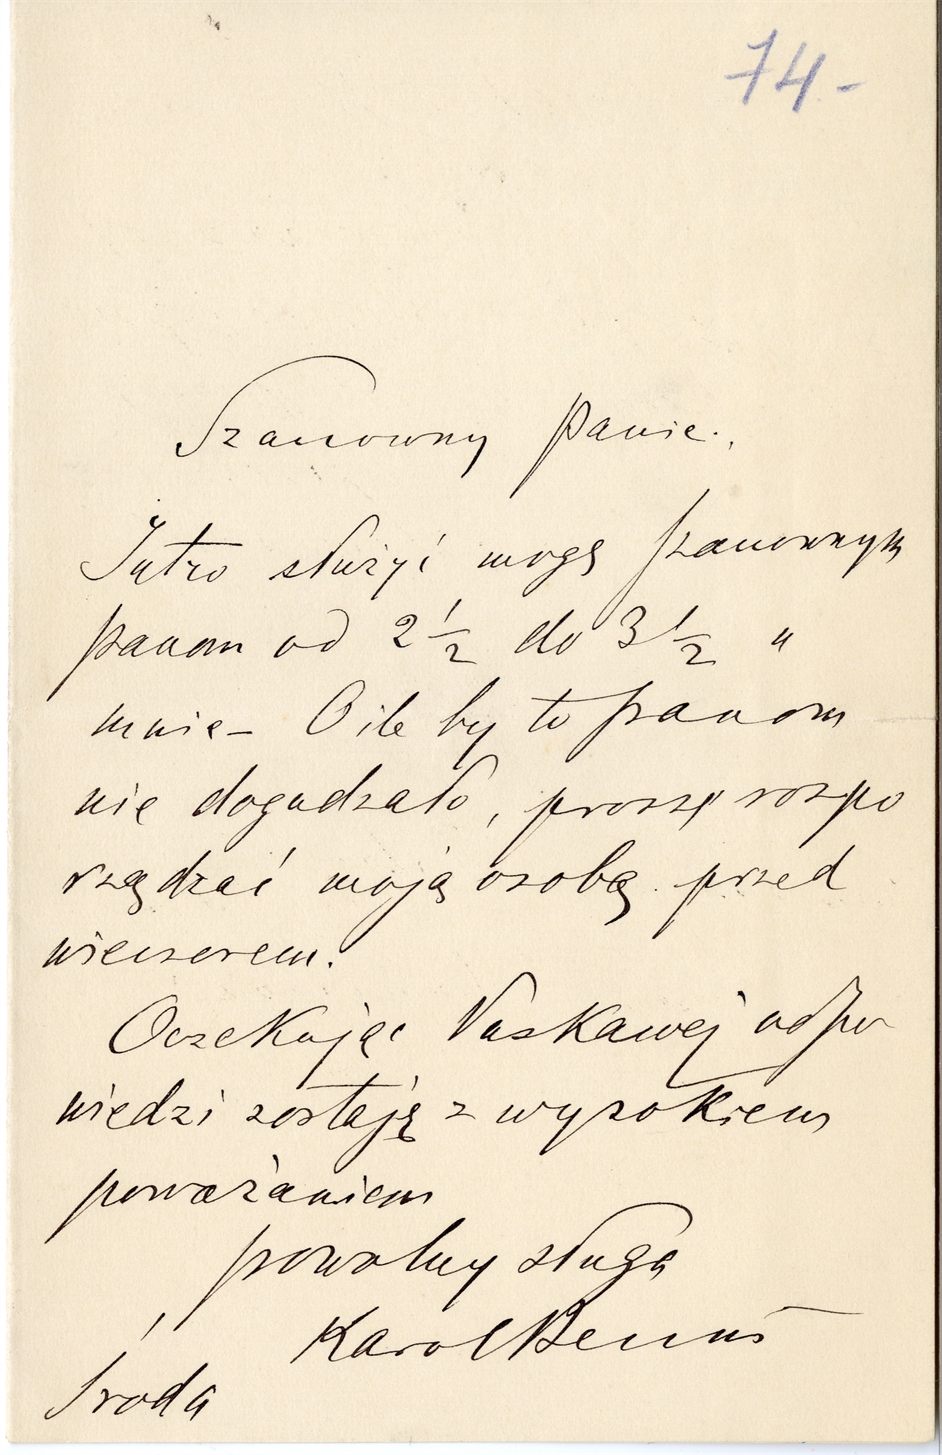 74-
Szanowny Panie.,
Jutro służyć mogę szanownym
panom od 2 1/2 do 3 1/2 u
mnie – O ile by to panom
nie dogadzało, proszę rozpo
rządzać moją osobą przed
wieczorem.
Oczekując łaskawej odpo
wiedzi zostaję z wysokiem
poważaniem
powolny sługa
Karol Benni
Środa